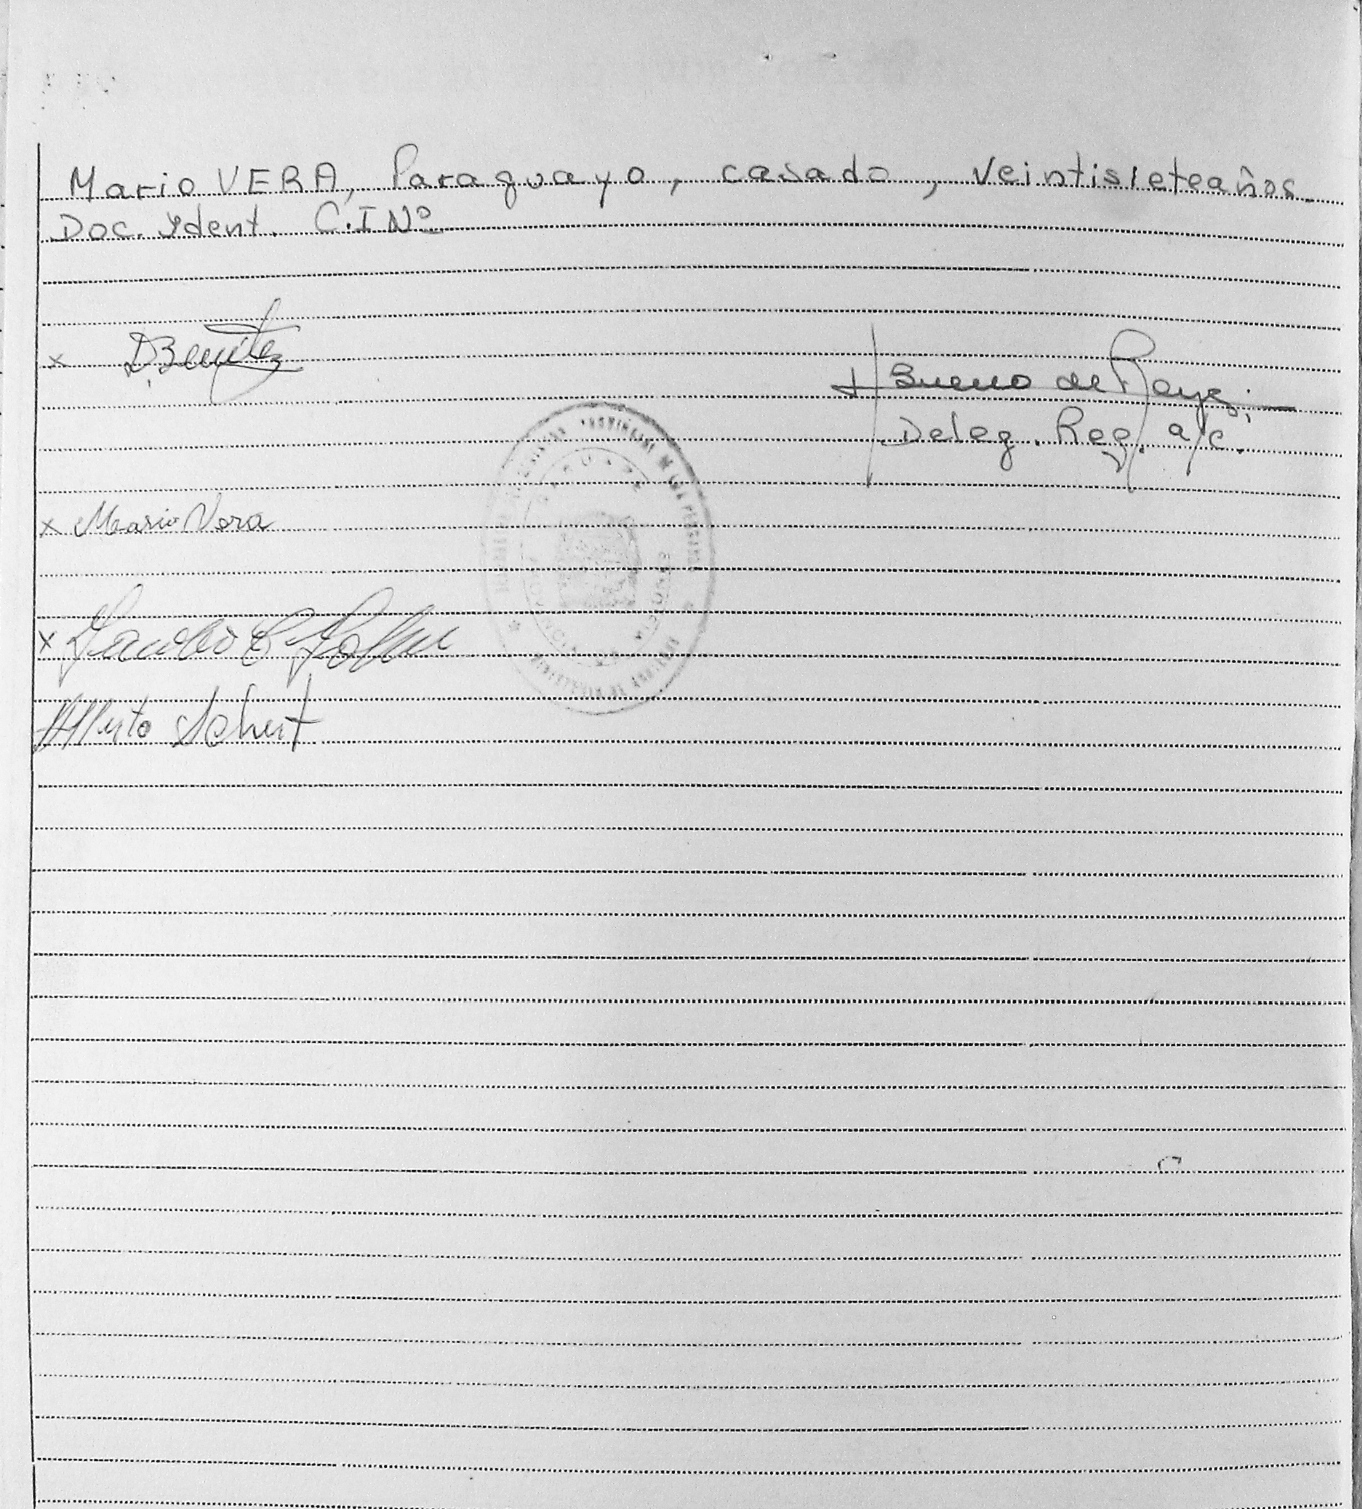 Mario VERA, Paraguayo, casado, veintisieteaños
Doc. Ydent. C.I Nº
x D.Benítez
H Bueno de Reyes
Deleg. Reg. a/c.
x Mario Vera
x
Alberto Schert